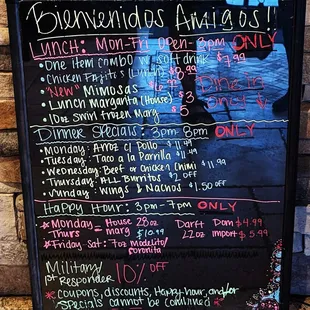 Bienvenidos Amigos!!
LUNCH: Mon-Fri Open-3pm ONLY
• One item combo w/ soft drink $7.99
• Chicken Fajitas (Lunch) $8.99
• "New" Mimosas $
• Lunch margarita (House) $3
• 10oz Swirl frozen Mary $5
Dine in
only
Dinner Specials: 3pm-8pm ONLY
• Monday: Arroz c/ Pollo $11.49
• Tuesday: Taco a la Parrilla $11.49
• Wednesday: Beef or chicken Chimi $11.99
• Thursday: ALL Burritos $2 OFF
• Sunday: Wings & Nachos $1.50 off
Happy Hour: 3pm-7pm ONLY
*Monday - House 28oz Darft Dom $4.99
Thurs = marg $10.99 22oz import $5.99
*Friday-Sat: 7oz modelito/
coronita
Military/
1st Responder 10% OFF
* coupons, discounts, Happy-hour, and/or
specials cannot be combined *